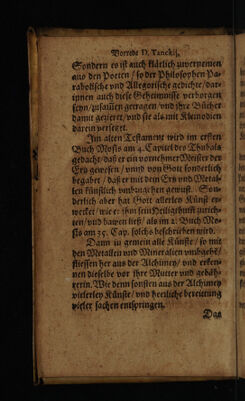 Vorrede D. Tanckij.
Sondern es ist auch klärlich zuvernemen
aus den Poeten / so der Philosophen Pa-
rabolische und Allegorische gedichte / dar-
innen auch diese Geheimnisse verborgen
seyn / zusamen getragen / und ihre Bücher
damit gezieret / und sie als mit Kleinodien
darein versetzet.
Im alten Testament wird im ersten
Buch Mosis am 4. Capitel des Thubals
gedacht / daß er ein vornehmer Meister der
Ertz gewesen / unnd von Gott sonderlich
begabet / daß er mit dem Ertz und Metal-
len künstlich umbzugehen gewust. Son-
derlich aber hat Gott allerley Künst er-
wecket / wie er ihm sein Heiligthumb zurich-
ten / und bawen ließ / als im 2. Buch Mo-
sis am 35. Cap. solchs beschrieben wird.
Dann in gemein alle Künste / so mit
den Metallen und Mineralien umbgehẽ /
fliessen her aus der Alchimey / und erken-
nen dieselbe vor ihre Mutter und gebäh-
rerin. Wie denn sonsten aus der Alchimey
vielerley Künste / und herliche bereitung
vieler sachen entspringen.
Das